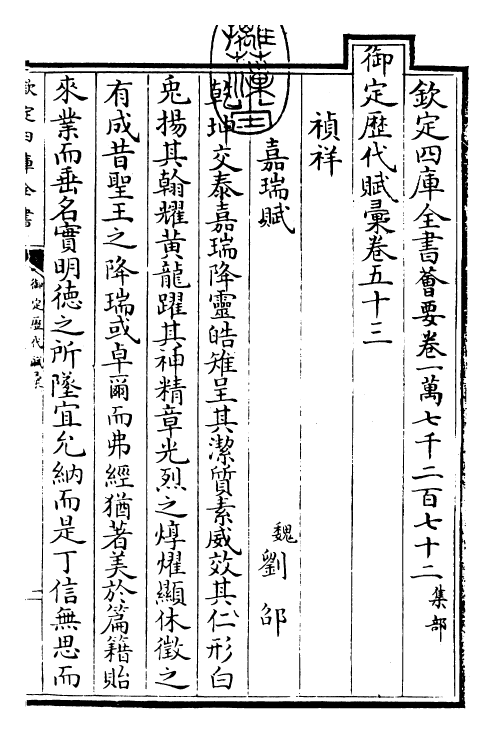 欽定四庫全書薈要卷一萬七千二百七十二 集部
御定歷代賦彙卷五十三
禎祥
嘉瑞賦
魏劉邵
乾坤交泰嘉瑞降靈皓雉呈其潔質素威效其仁形白
兎揚其翰耀黃龍躍其神精章光烈之焞燿顯休徵之
有成昔聖王之降瑞或卓爾而弗經猶著美於篇籍貽
來業而垂名實明德之所墜宜允納而是丁信無思而
欽定四庫全書
御定歷代賦彙